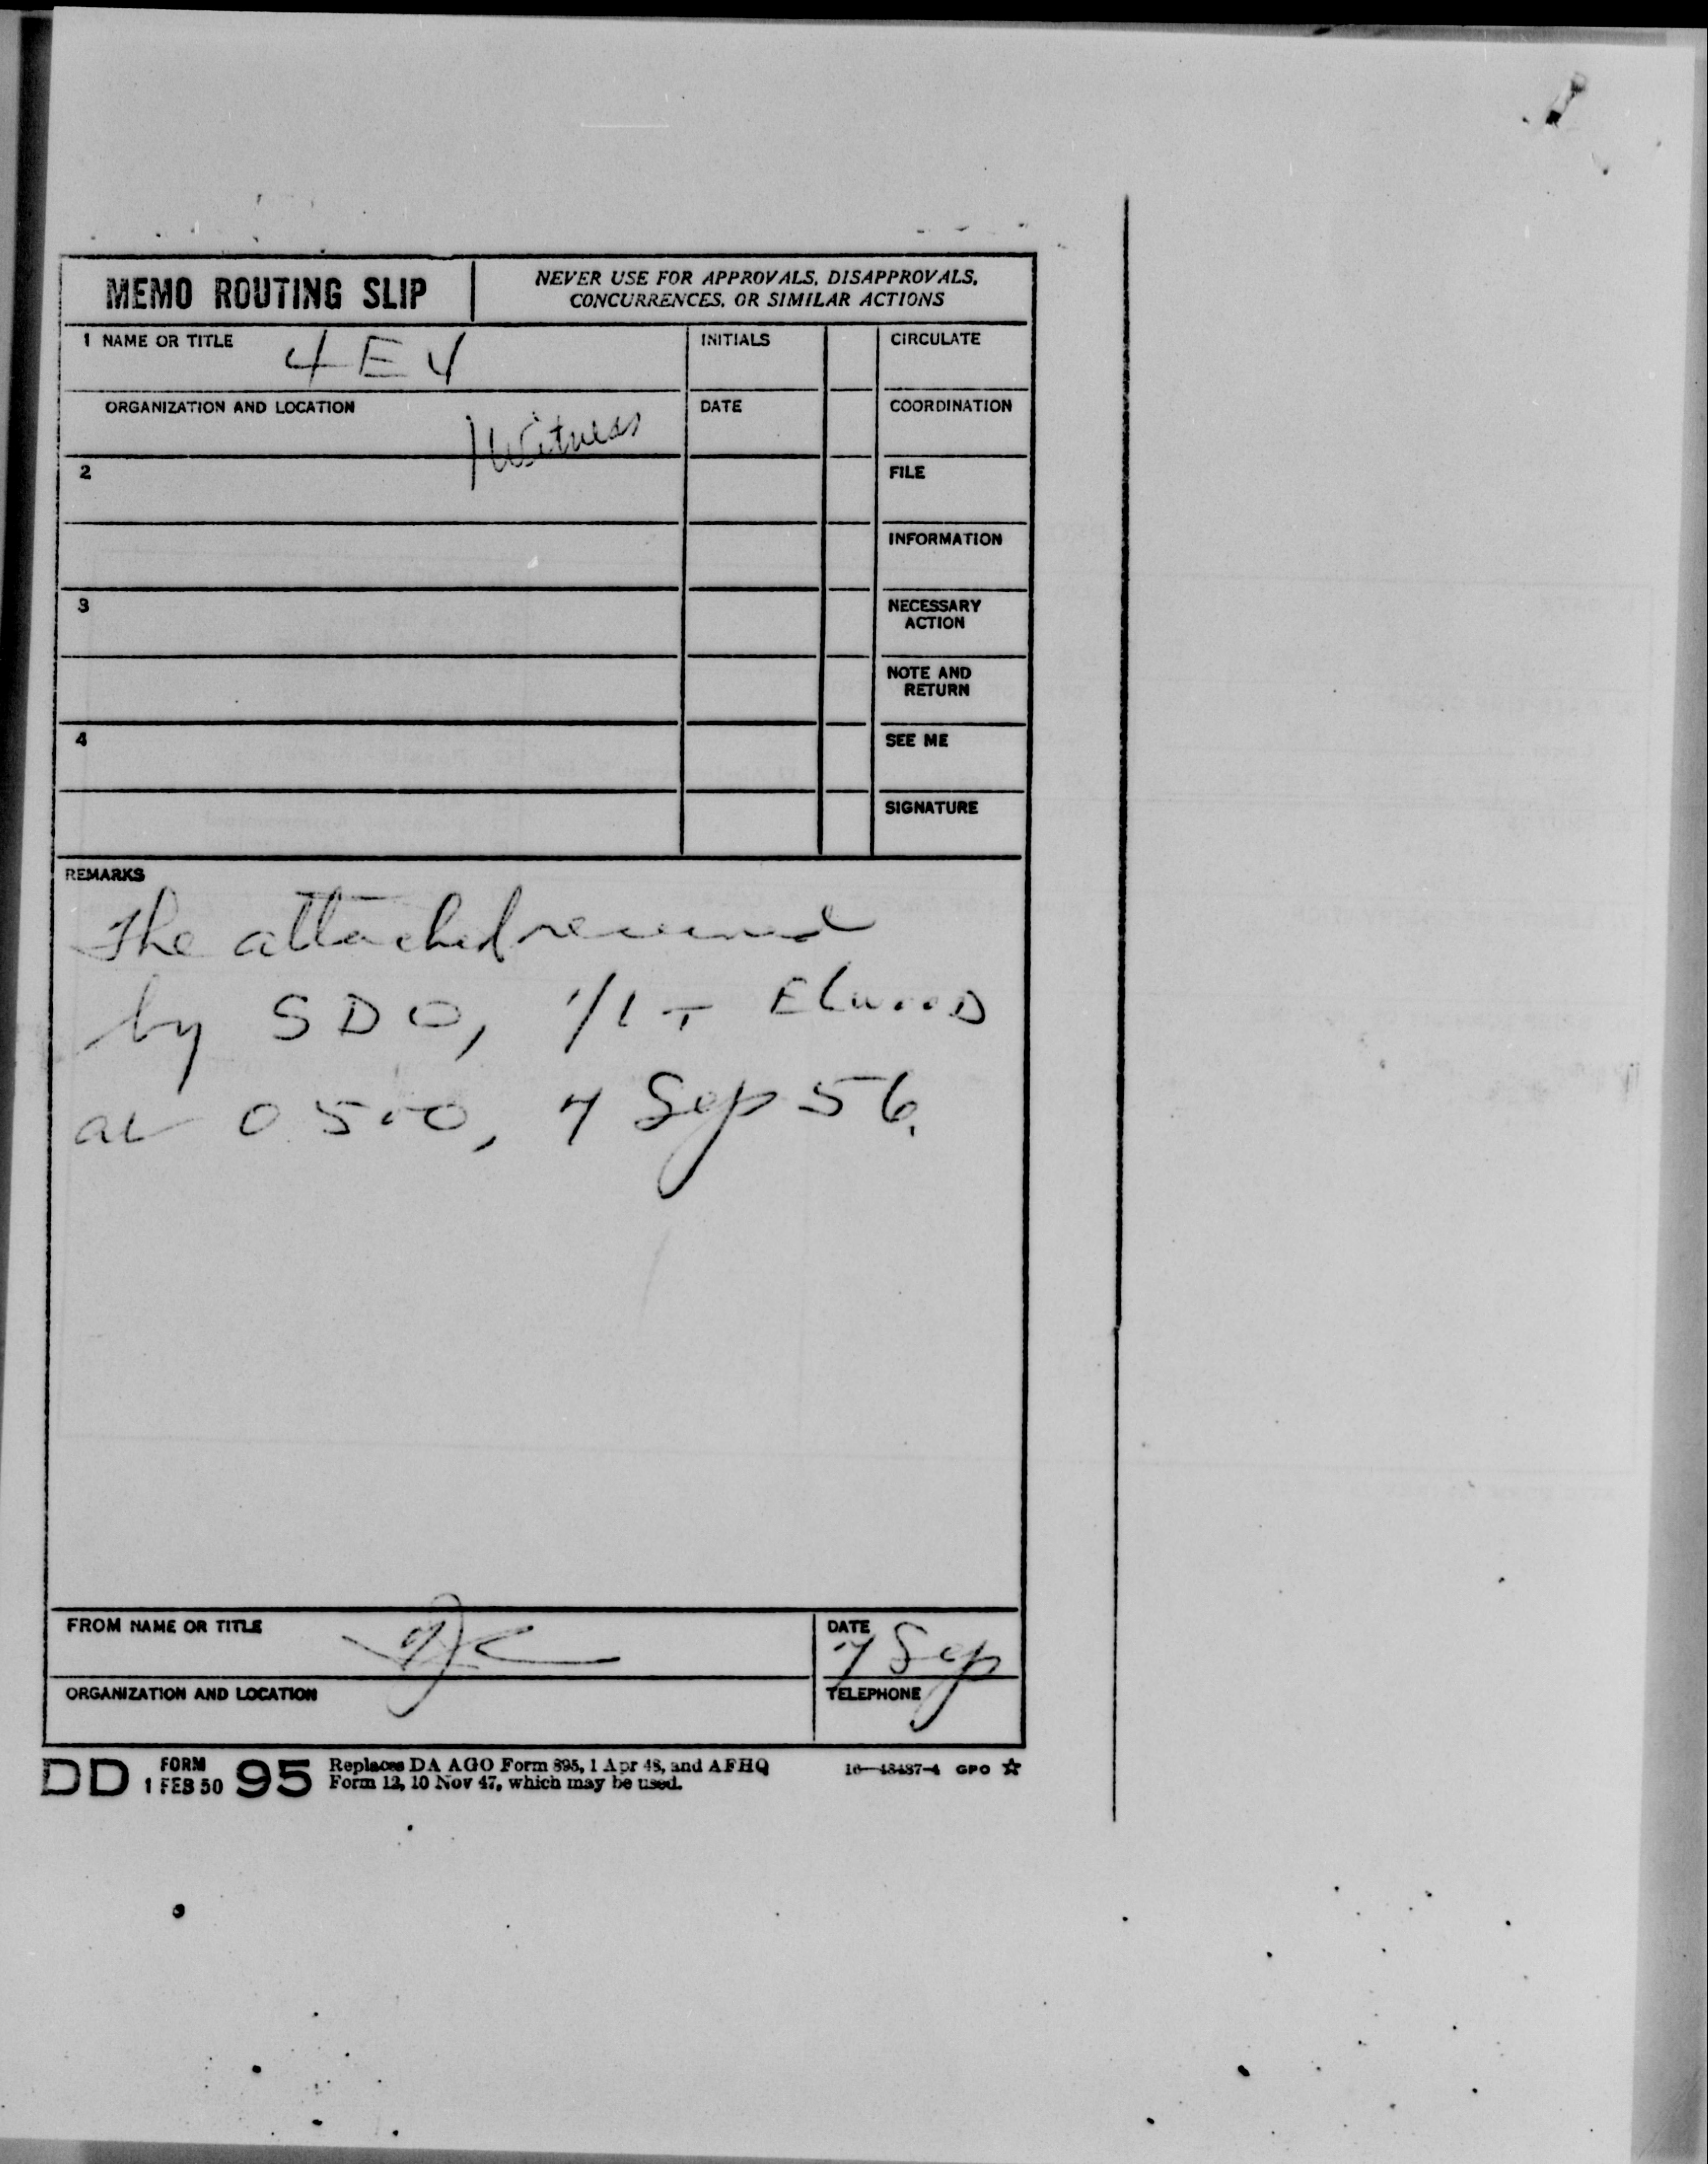 MEMO ROUTING SLIP
NEVER USE FOR APPROVALS, DISAPPROVALS,
CONCURRENCES, OR SIMILAR ACTIONS
1 NAME OR TITLE 4E4
INITIALS
CIRCULATE
ORGANIZATION AND LOCATION
Witness
DATE
COORDINATION
2
FILE
INFORMATION
3
NECESSARY
ACTION
NOTE AND
RETURN
4
SEE ME
SIGNATURE
REMARKS
The attached received
by SDO, 1/LT Elwood
at 0500, 7 Sep 56.
FROM NAME OR TITLE
DATE
7 Sep
ORGANIZATION AND LOCATION
TELEPHONE
DD FORM 1 FEB 50 95 Replaces DA AGO Form 895, 1 Apr 48, and AFHQ
Form 12, 10 Nov 47, which may be used.
16—48487-4 GPO